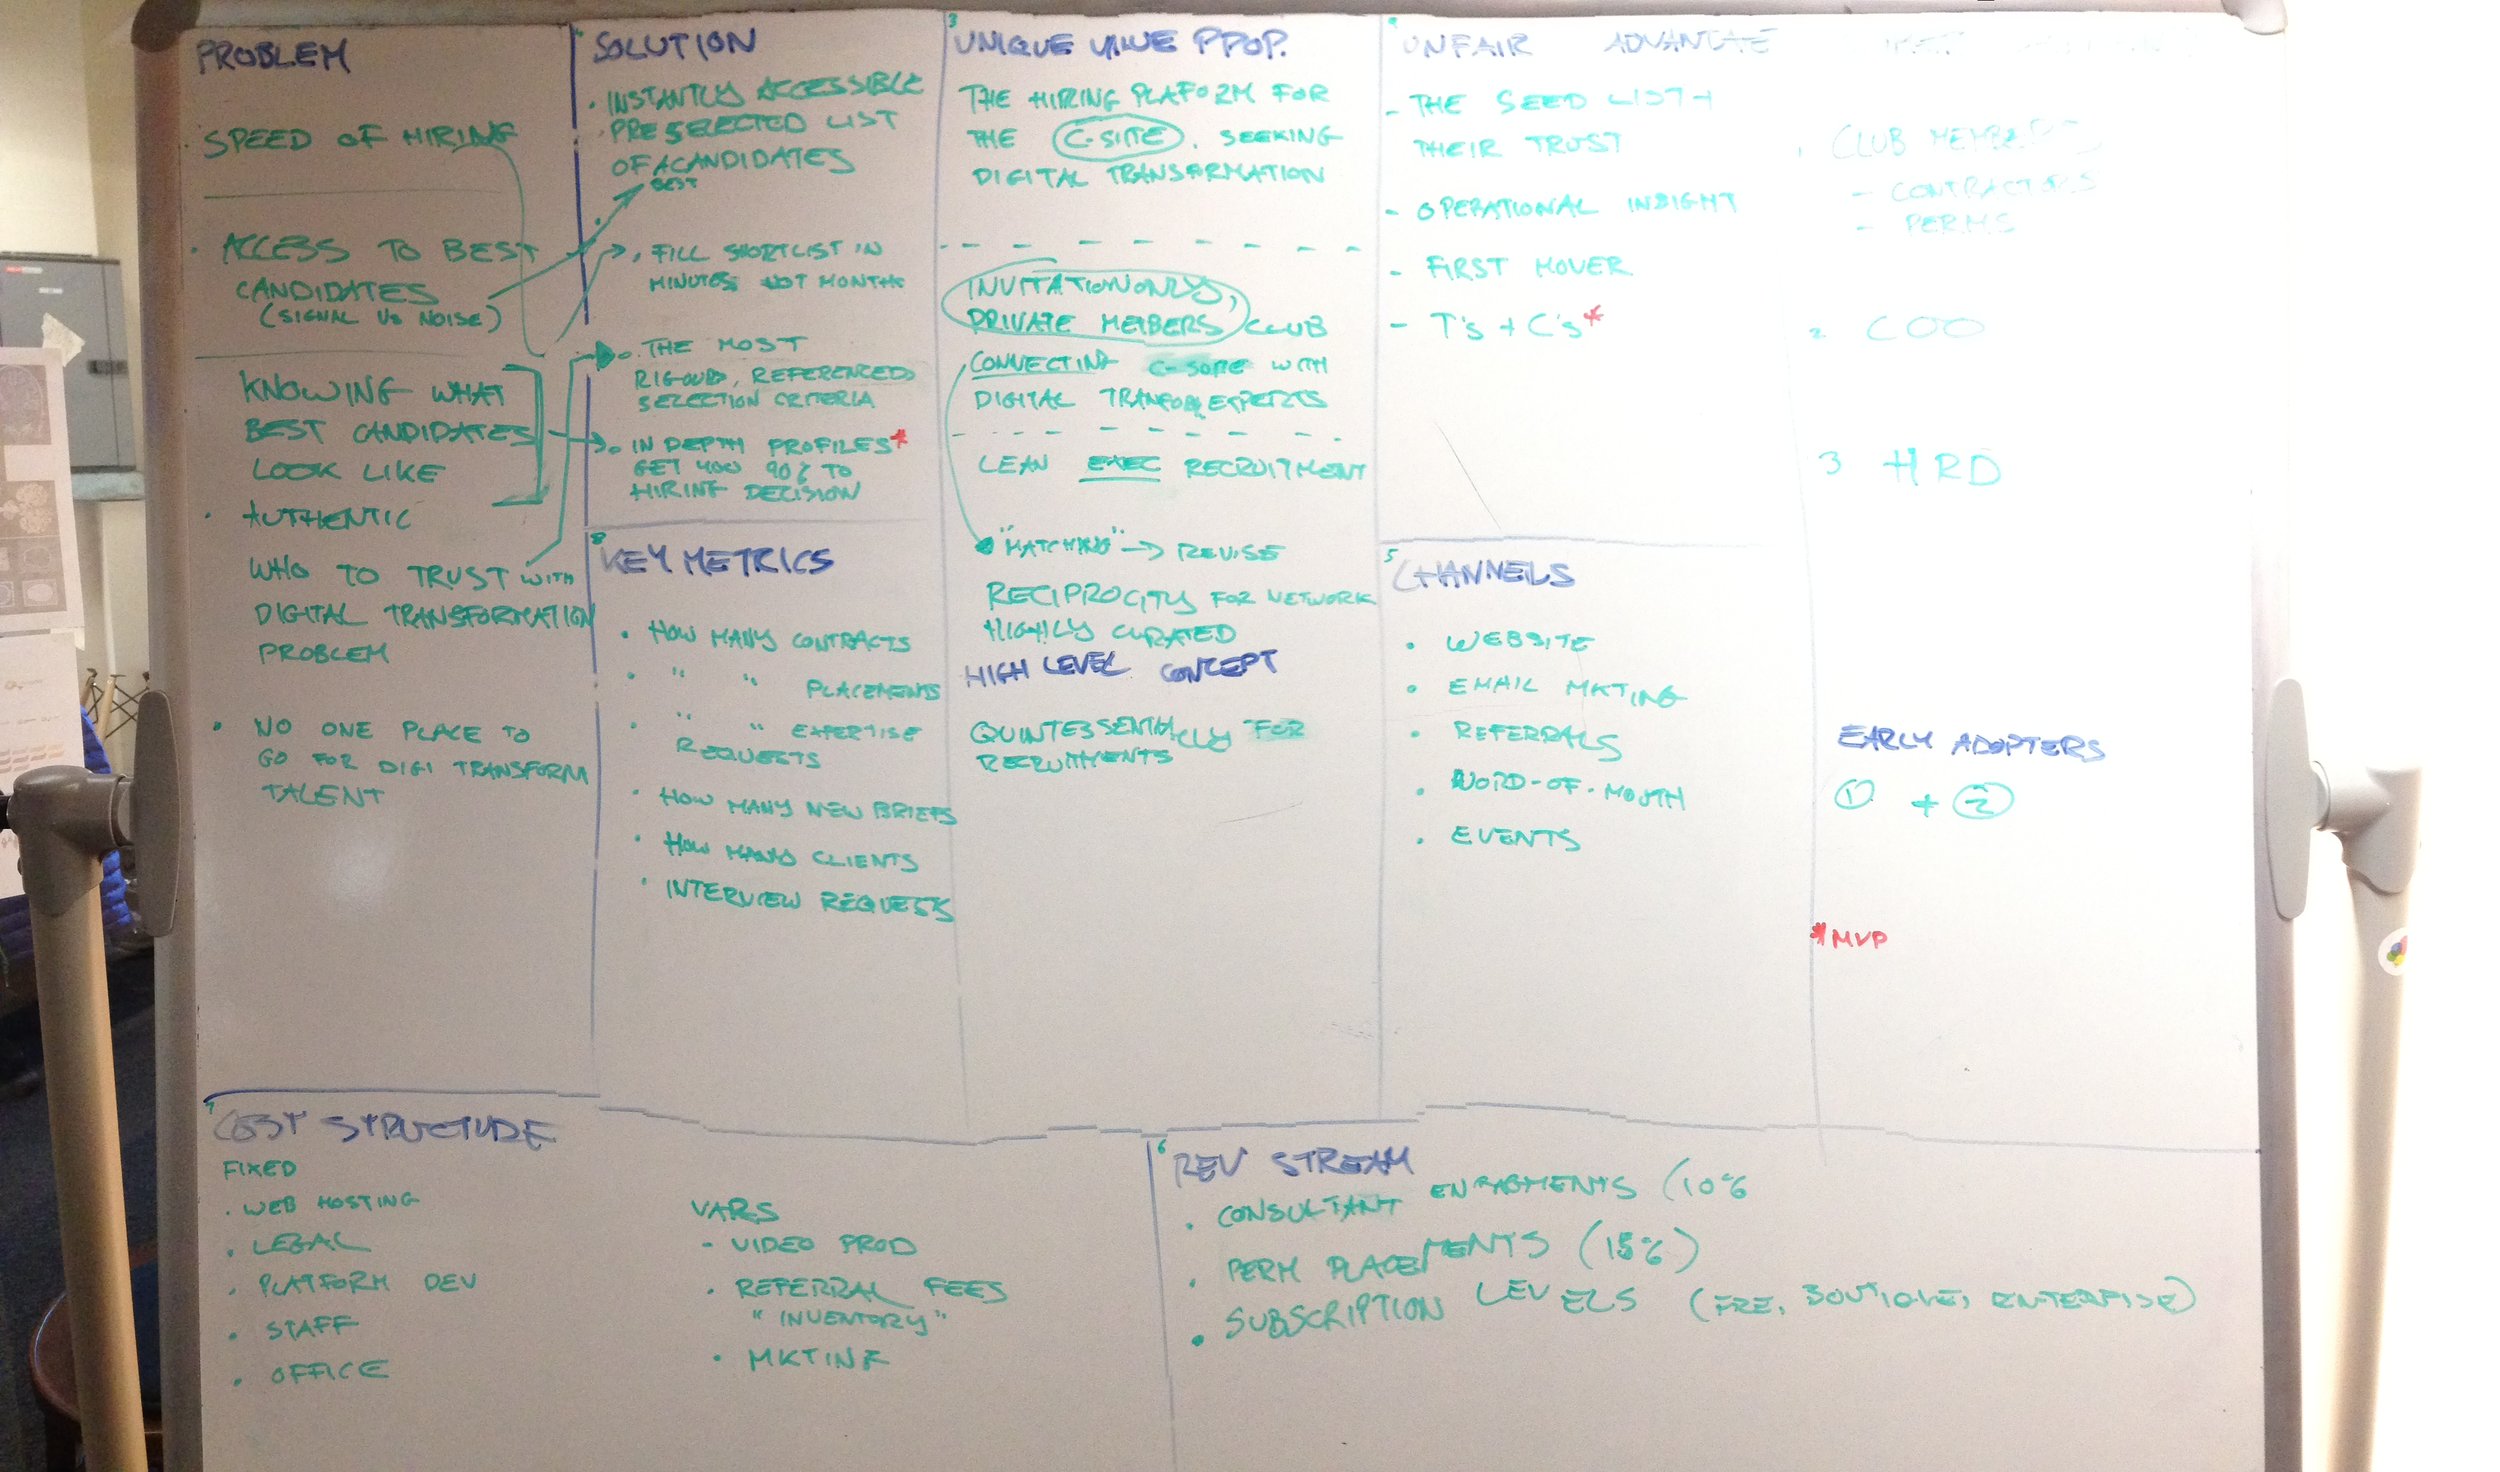 PROBLEM
· SPEED OF HIRING
· ACCESS TO BEST
CANDIDATES
(SIGNAL VS NOISE)
KNOWING WHAT
BEST CANDIDATES
LOOK LIKE
· AUTHENTIC
WHO TO TRUST WITH
DIGITAL TRANSFORMATION
PROBLEM
· NO ONE PLACE TO
GO FOR DIGI TRANSFORM
TALENT
4
SOLUTION
· INSTANTLY ACCESSIBLE
· PRESELECTED LIST
OF A CANDIDATES
BEST
· FILL SHORTLIST IN
MINUTES NOT MONTHS
· THE MOST
RIGOUR, REFERENCED
SELECTION CRITERIA
· IN DEPTH PROFILES*
GET YOU 90% TO
HIRING DECISION
8
KEY METRICS
· HOW MANY CONTRACTS
· " " PLACEMENTS
· " " EXPERTISE
REQUESTS
· HOW MANY NEW BRIEFS
· HOW MANY CLIENTS
· INTERVIEW REQUESTS
3
UNIQUE VALUE PROP.
THE HIRING PLAFORM FOR
THE C-SUITE, SEEKING
DIGITAL TRANSFORMATION
INVITATION ONLY,
PRIVATE MEMBERS CLUB
CONNECTING C-SUITE WITH
DIGITAL EXPERTS
LEAN EXEC RECRUITMENT
"MATCHING" → REVISE
RECIPROCITY FOR NETWORK
HIGHLY CURATED
HIGH LEVEL CONCEPT
QUINTESSENTIALLY FOR
RECRUITMENTS
9
UNFAIR ADVANTAGE
- THE SEED LIST +
THEIR TRUST
- OPERATIONAL INSIGHT
- FIRST MOVER
- T's + C's*
5
CHANNELS
· WEBSITE
· EMAIL MKTING
· REFERRALS
· WORD-OF-MOUTH
· EVENTS
1 CLUB MEMBERS
- CONTRACTORS
- PERMS
2 COO
3 HRD
EARLY ADOPTERS
① + ②
*MVP
7
COST STRUCTURE
FIXED
· WEB HOSTING
· LEGAL
· PLATFORM DEV
· STAFF
· OFFICE
VARS
- VIDEO PROD
· REFERRAL FEES
"INVENTORY"
· MKTING
6
REV STREAM
· CONSULTANT (10%
· PERM PLACEMENTS (15%)
· SUBSCRIPTION LEVELS (FRE, BOUTIQUE, ENTERPISE)